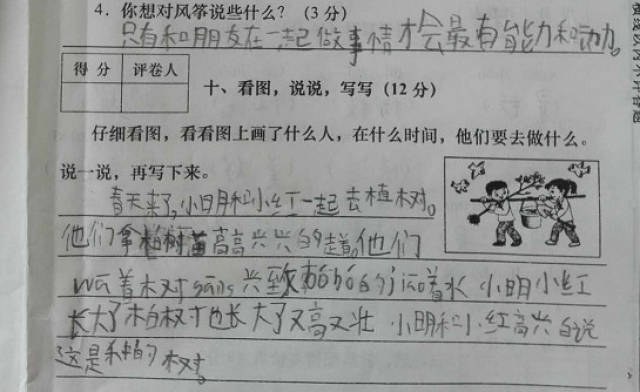 4．你想对风筝说些什么？（3 分）
只有和朋友在一起做事情才会最有能力和动力。
得 分 评卷人
十、看图，说说，写写（12 分）
仔细看图，看看图上画了什么人，在什么时间，他们要去做什么。
说一说，再写下来。
春天来了，小明和小红一起去植树。
他们拿 树苗高高兴兴的 他们
wā着木对 兴致 bó的 着水 小明小红
长大了 树也长大了又高又壮 小明和小红高兴的说
这是 的树。